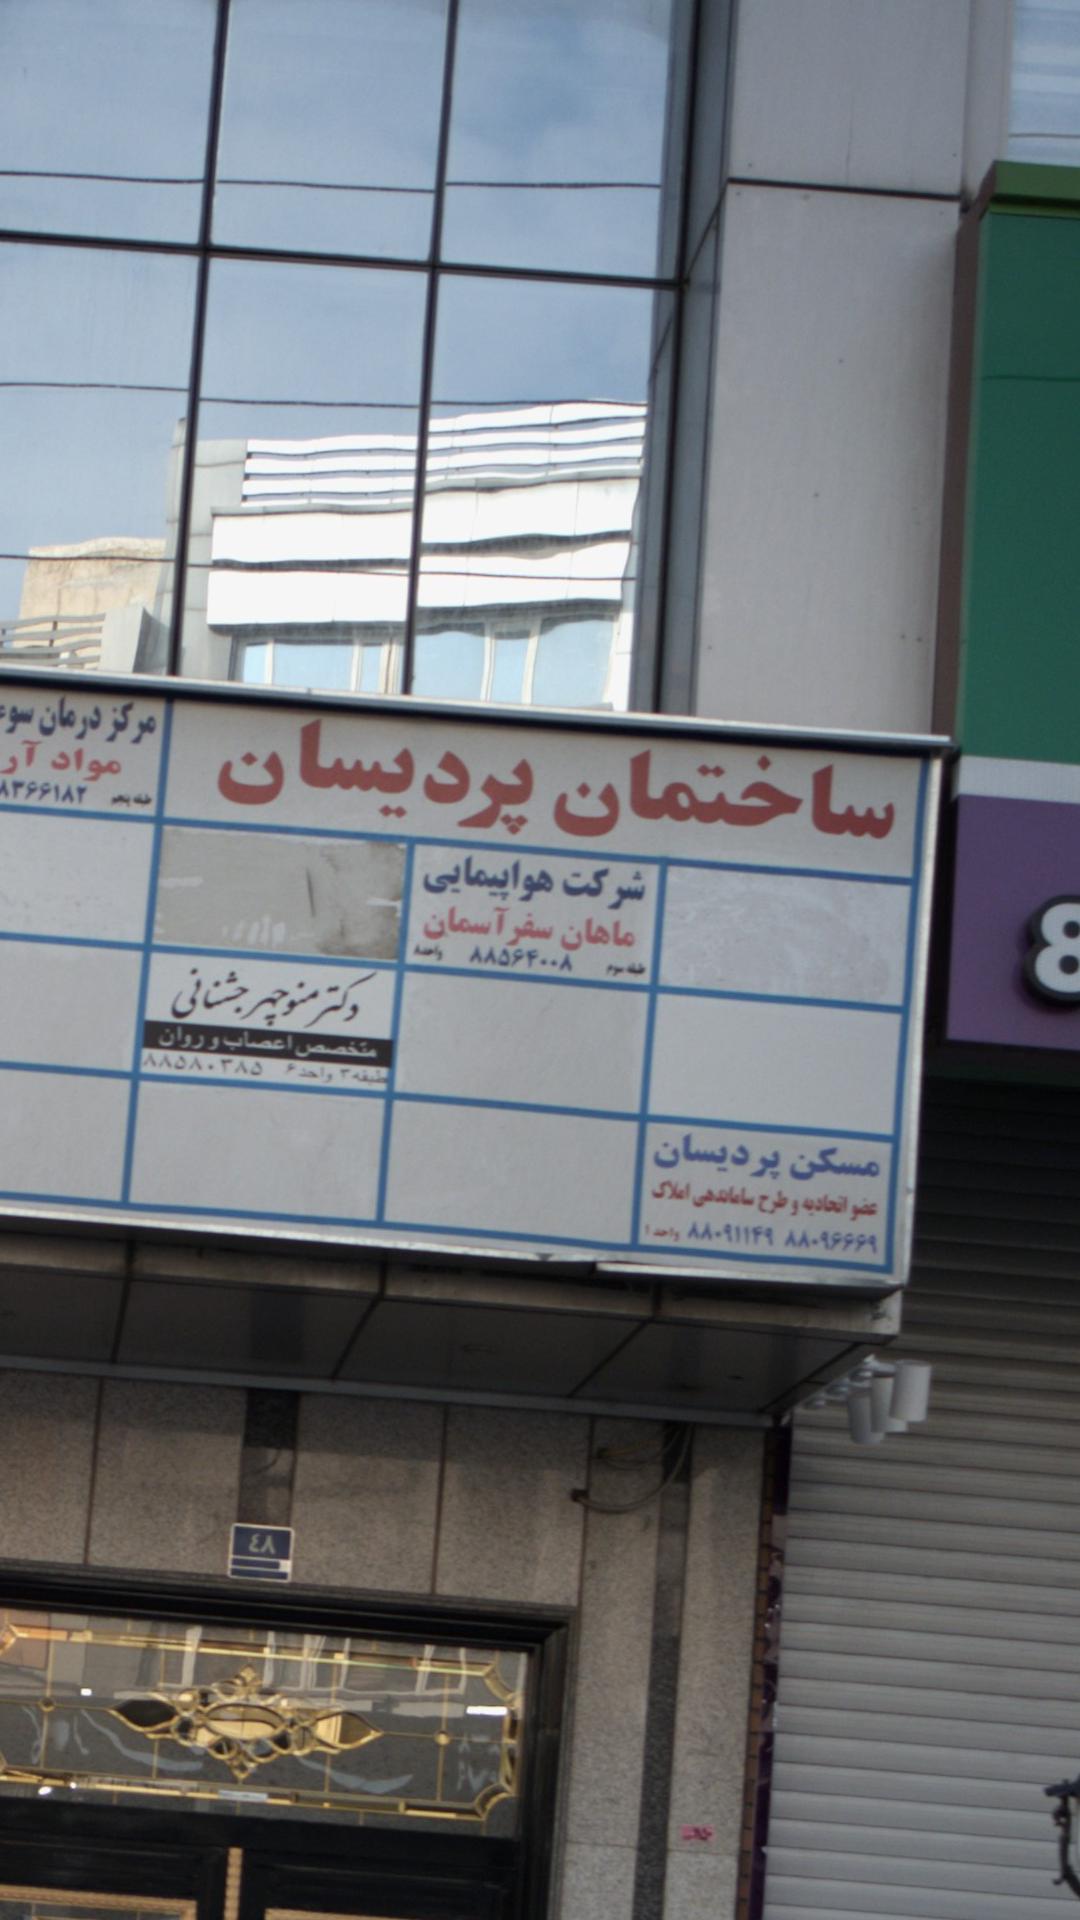 ساختمان پردیسان
مرکز درمان سوء
مواد آر
طبقه پنجم ۸۳۶۶۱۸۲
شرکت هواپیمایی
ماهان سفر آسمان
طبقه سوم ۸۸۵۶۴۰۰۸ واحد۸
دکتر منوچهر جشنانی
متخصص اعصاب و روان
طبقه۳ واحد۶ ۸۸۵۸۰۳۸۵
مسکن پردیسان
عضو اتحادیه و طرح ساماندهی املاک
۸۸۰۹۶۶۶۹ ۸۸۰۹۱۱۴۹ واحد ۱
8
٤٨